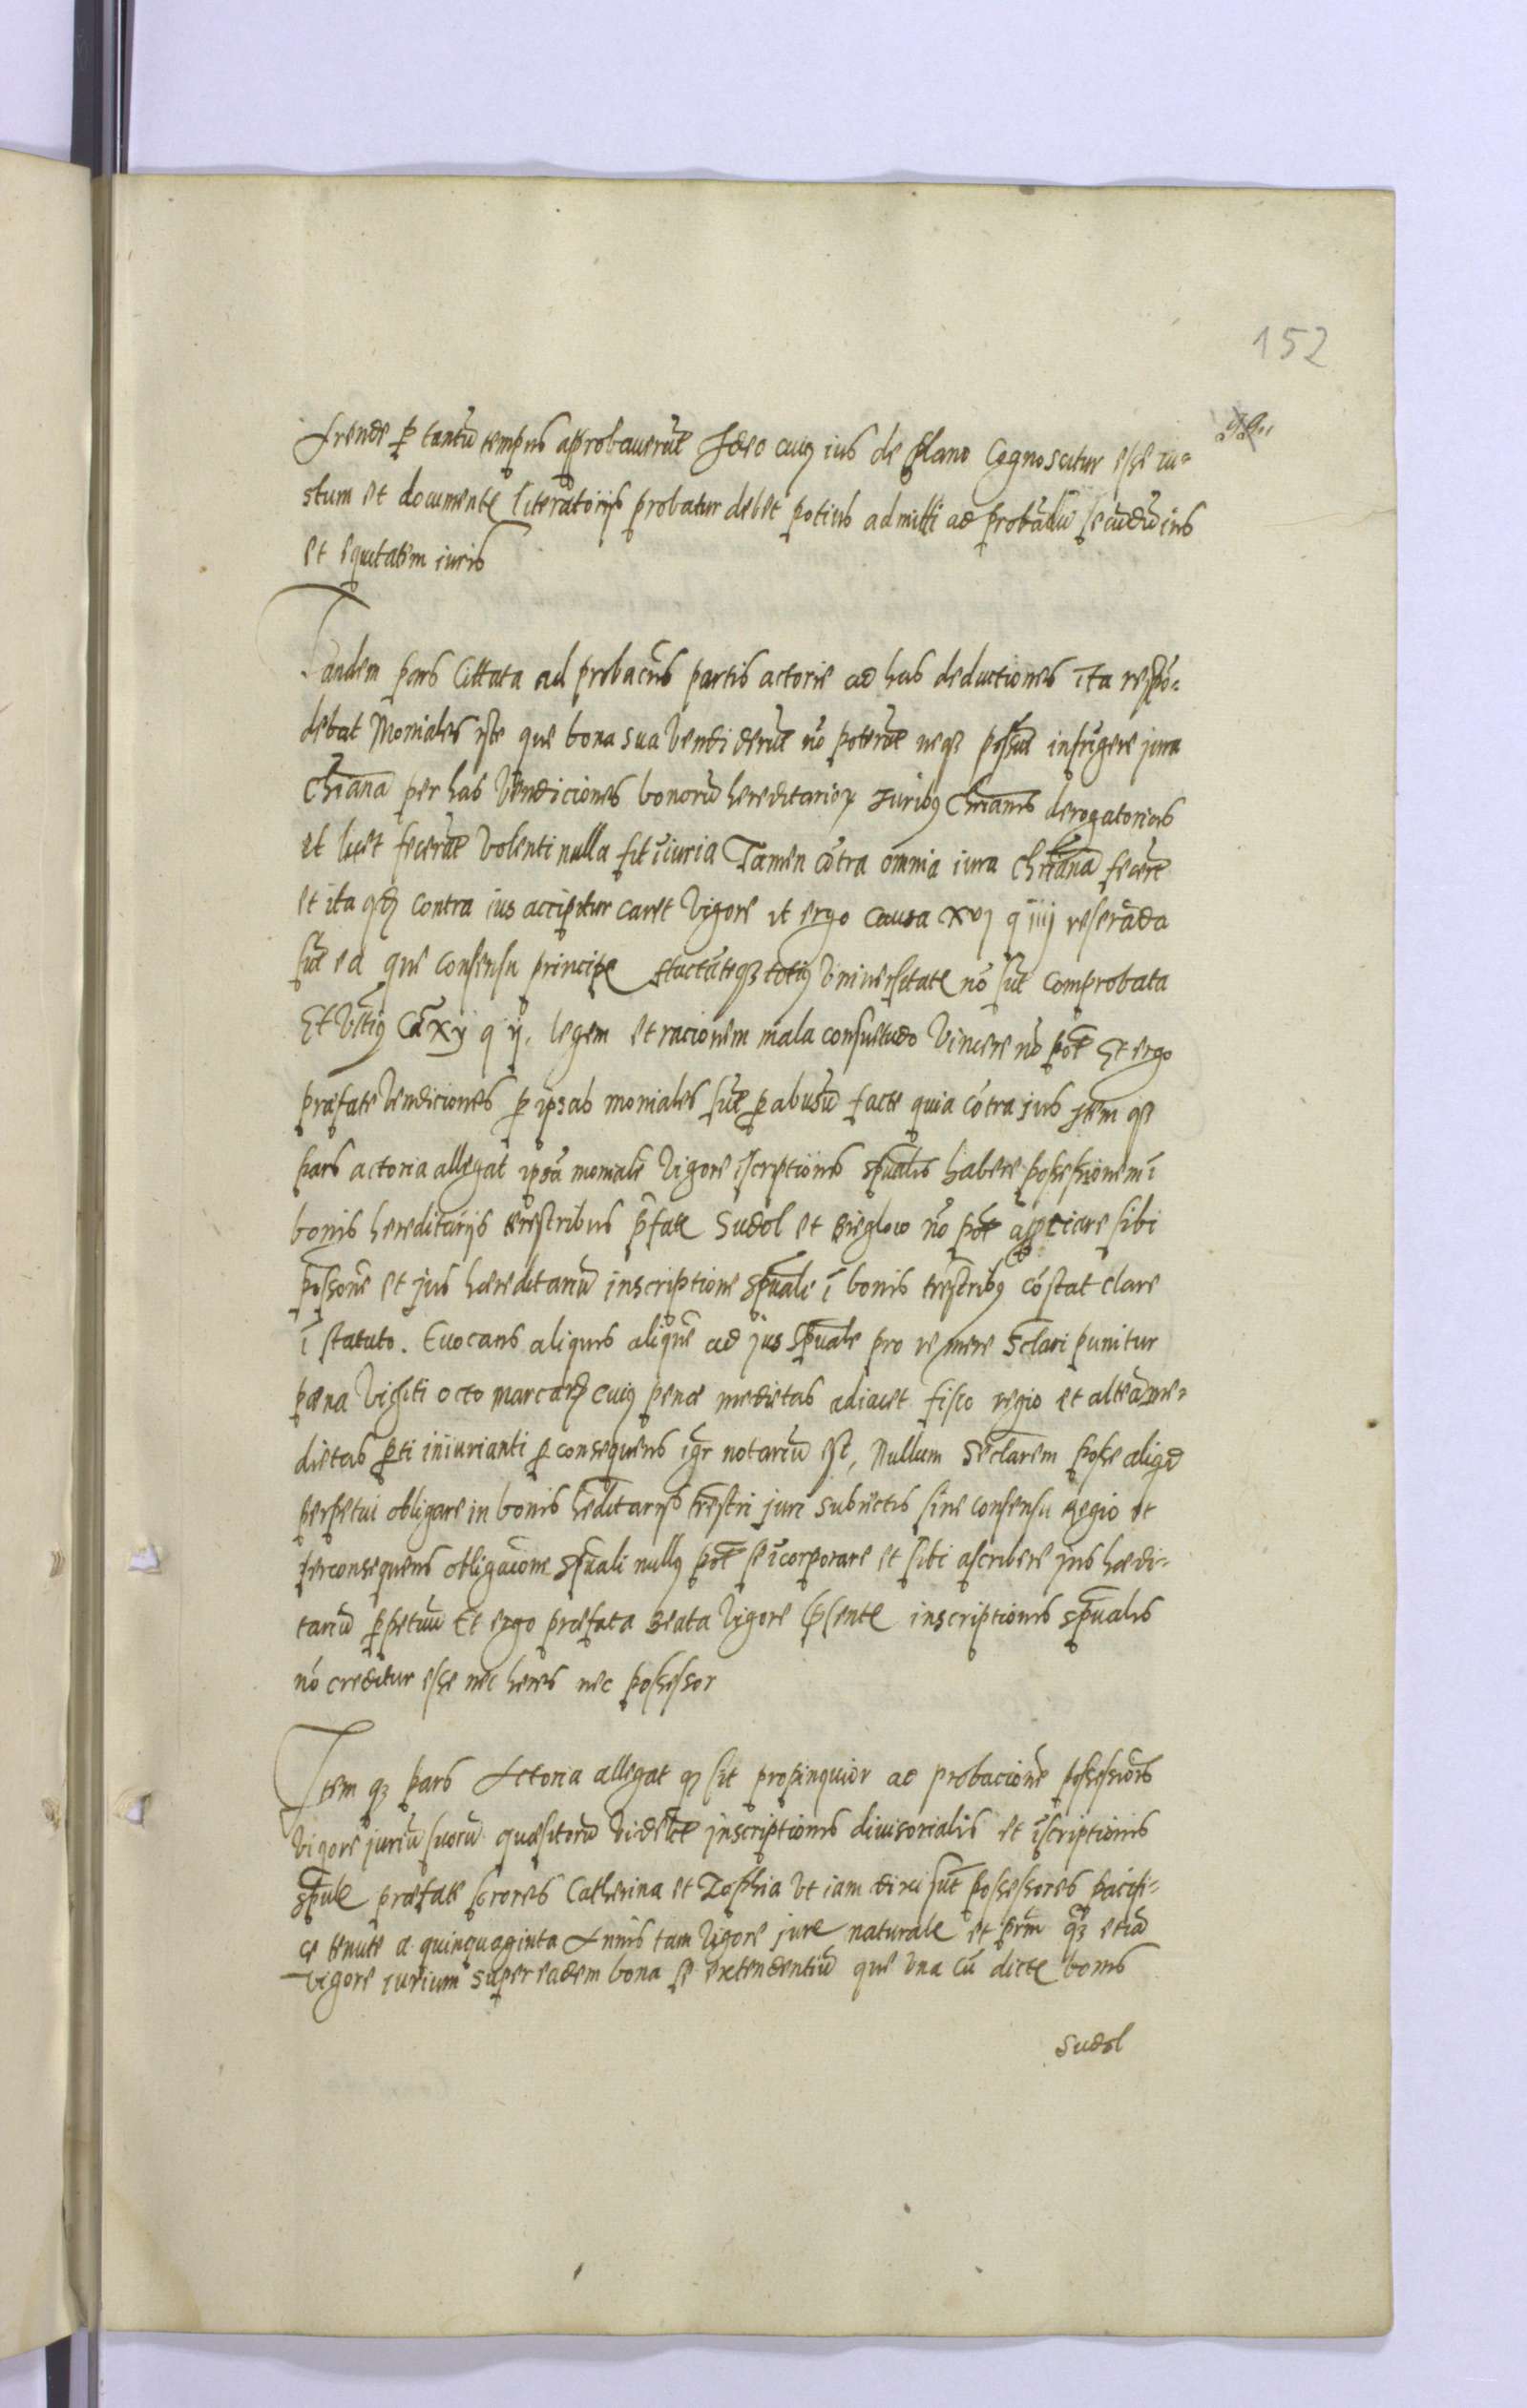 152
Arende p tantū tempus approbauerūt Ideo cuiꝰ ius de plano Cognoscitur esse iu=
stum et documentꝭ literatorijs probatur debet potius admitti ad probādū secūdū ius
et equitatem iuris
Tandem pars Cittata ad probacēs partis actorie ad has deductiones Ita respō=
debat Moniales iste que bona sua vendiderūt nō poterūt neqꝫ possūt infrīgere jura
Chīana per has Vendiciones bonorū hereditarioꝝ Iuribꝰ Chīanis derogatorias
et licet fecerūt Volenti nulla fit īiuria Tamen cōtra omnia iura Chīana fecerūt
et ita qd contra ius accipitur caret Vigore et ergo causa xvj q iiij reserāda
sūt ea que consensu principꝭ totiꝰ Vniuersitatꝭ nō sūt comprobata
Et Vltiꝰ Cā xij q ij. legem et racionem mala consuetudo Vincere nō pōt Et ergo
præfate Vendiciones ꝑ ipsas moniales sūt ꝑ abusū facte quia cōtra jus Item qꝫ
pars actoria allegat ipsā monialē Vigore īscriptionis spūalis habere possessionem ī
bonis hereditarijs terrestribus p̄fatꝭ Sudol et Bieglow nō pōt sibi
possonē et jus hæreditariū inscriptione spūali ī bonis trēstribꝰ cōstat clare
ī statuto. Euocans aliquis aliquē ad jus Spūale pro re mere Sclari punitur
pæna Viginti octo marcarꝭ cuiꝰ penæ medietas adiacet fisco regio et alterā me=
dietas ꝑti iniurianti ꝑ consequens igr notariū est, Nullum Sēclarem posse aliqd
perpetui obligare in bonis hēditarijs trēstri juri subiectis sine consensu Regio et
perconsequens obligacione spūali nullꝰ pōt se īcorporare et sibi ascribere jus hædi=
tariū ꝑpetuū Et ergo præfata Beata Vigore p̄sentꝭ inscriptionis spūalis
nō creditur esse nec heres nec possessor
Item qꝫ pars Actoria allegat qꝫ sit propinquior ad probacionē possessiōis
Vigore juriū suorū quæsitorū Videlꝫ inscriptionis diuisorialis et īscriptionis
spūlꝭ præfate sorores Catherina et Zophia Vt iam dixi sūt possessores pacifi=
ce tenute a quinquaginta Annis tam Vigore jurꝭ naturalꝭ et prīm qꝫ etiā
Vigore iurium super eadem bona se extendentiū que Vna cū dictꝭ bonis
Sudol